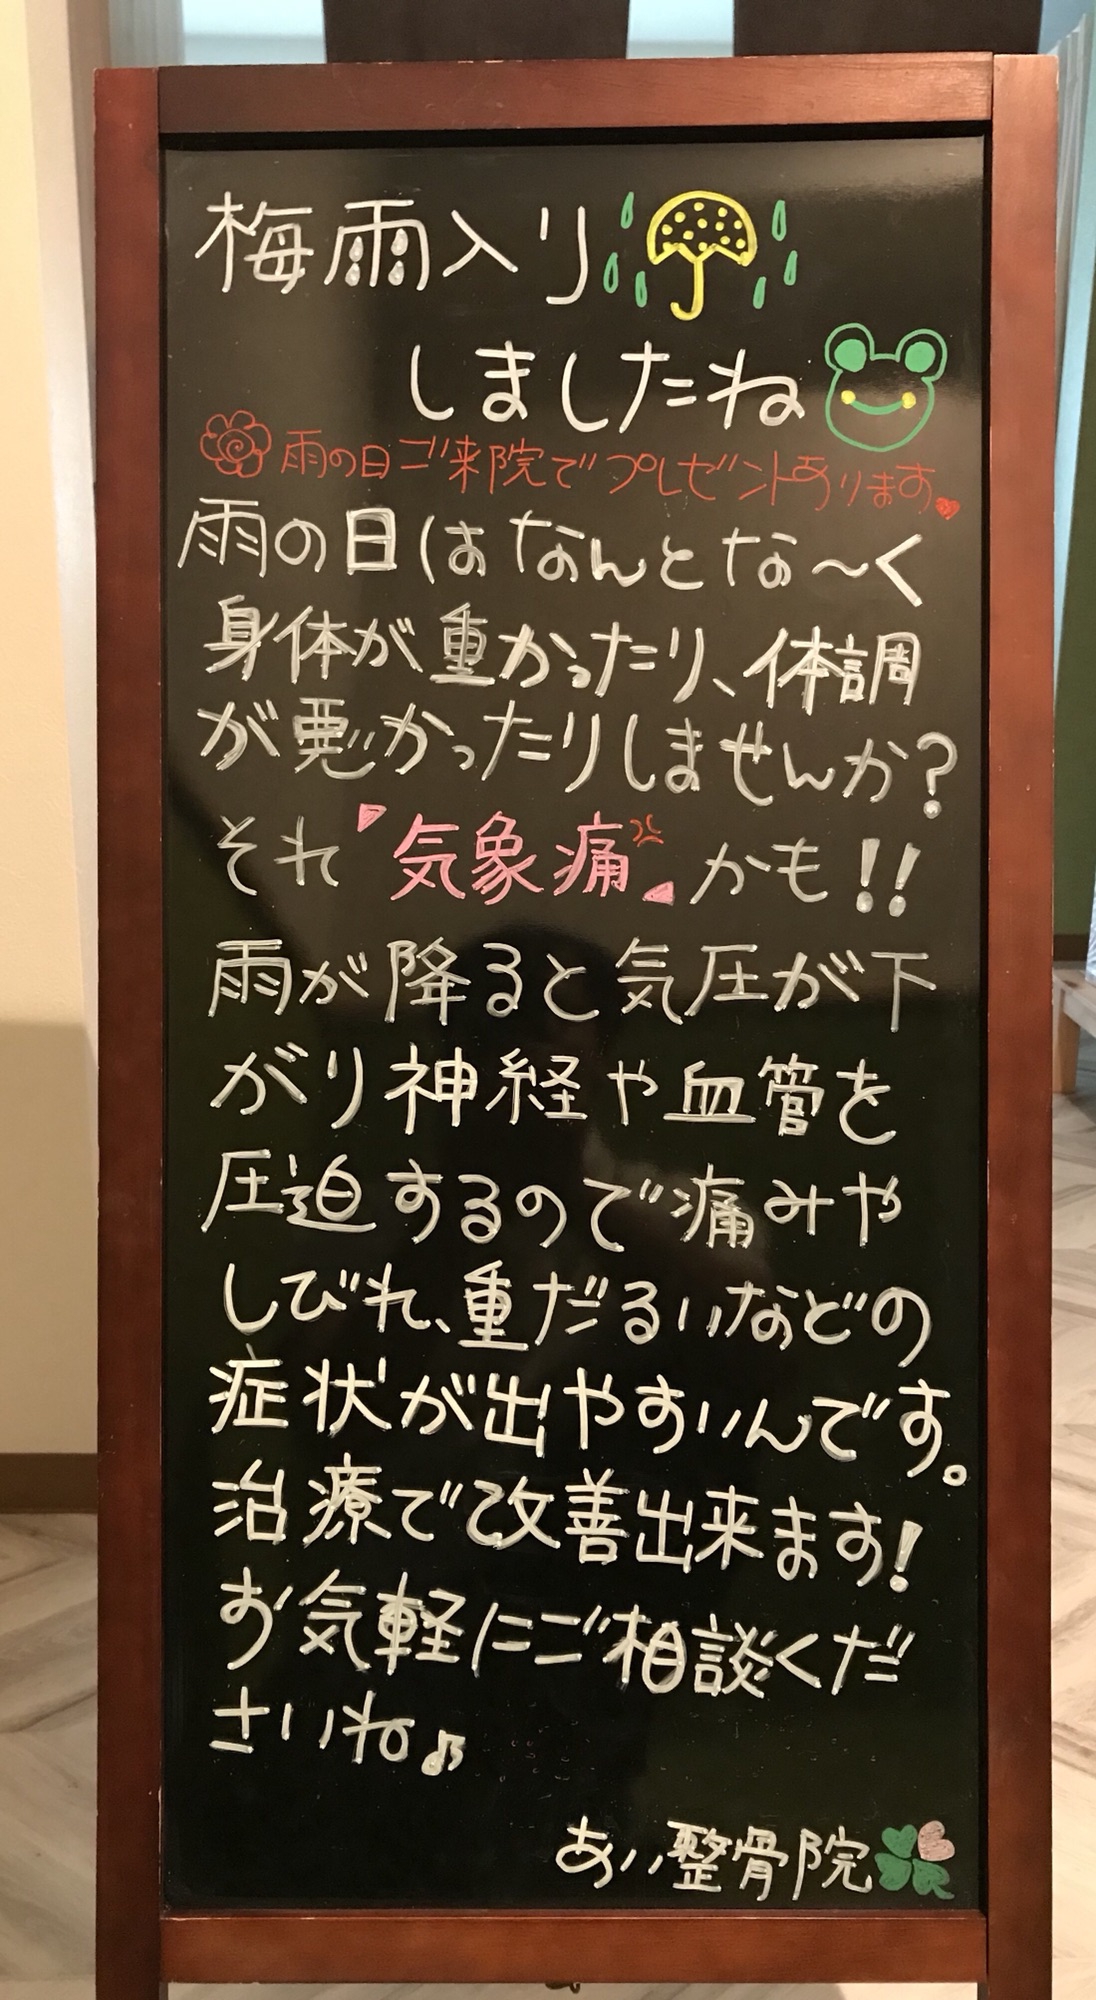 梅雨入り
しましたね
雨の日ご来院でプレゼントあります。
雨の日はなんとな〜く
身体が重かったり、体調
が悪かったりしませんか?
それ"気象痛"かも!!
雨が降ると気圧が下
がり神経や血管を
圧迫するので痛みや
しびれ、重だるいなどの
症状が出やすいんです。
治療で改善出来ます!
お気軽にご相談くだ
さいね♪
あい整骨院